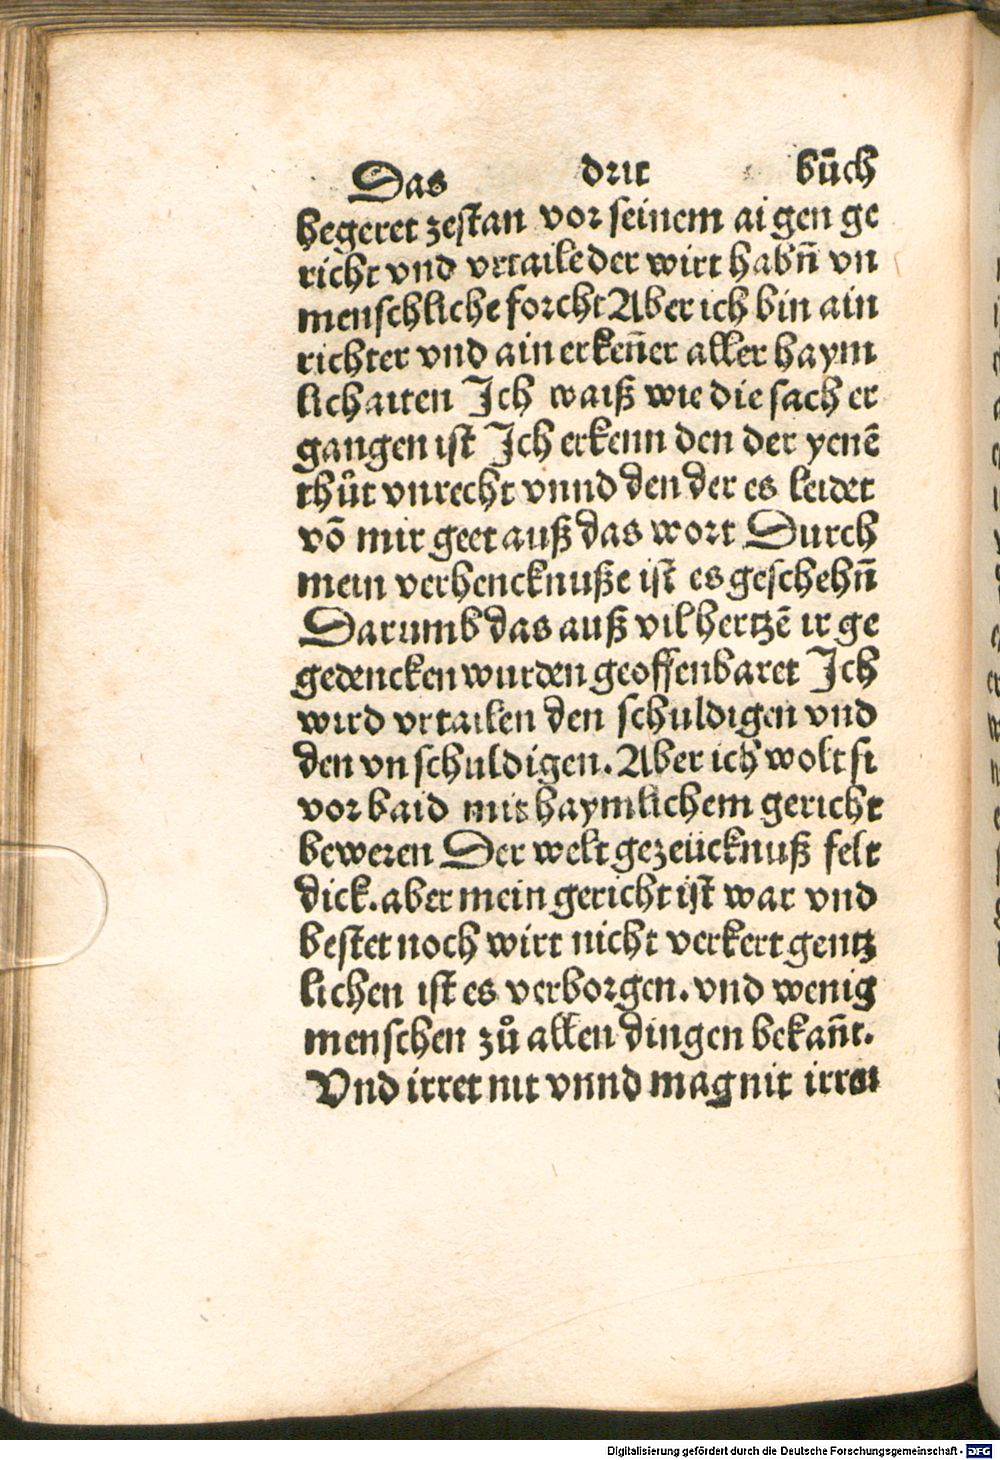 Das drit bůch
begeret zestan vor seinem aigen ge
richt vnd vrtaile der wirt habn̄ vn
menschliche forcht Aber ich bin ain
richter vnd ain erken̄er aller haym
lichaiten Ich waiß wie die sach er
gangen ist Ich erkenn den der yenē
thůt vnrecht vnnd den der es leidet
vō mir geet auß das wort Durch
mein verhencknuße ist es geschehn̄
Darumb das auß vil hertzē ir ge
gedencken wurden geoffenbaret Ich
wird vrtailen den schuldigen vnd
den vnschuldigen. Aber ich wolt si
vor baid mit haymlichem gericht
beweren Der welt gezeücknuß felt
dick. aber mein gericht ist war vnd
bestet noch wirt nicht verkert gentz
lichen ist es verborgen. vnd wenig
menschen zů allen dingen bekan̄t.
Vnd irret nit vnnd mag nit irren
Digitalisierung gefördert durch die Deutsche Forschungsgemeinschaft - DFG